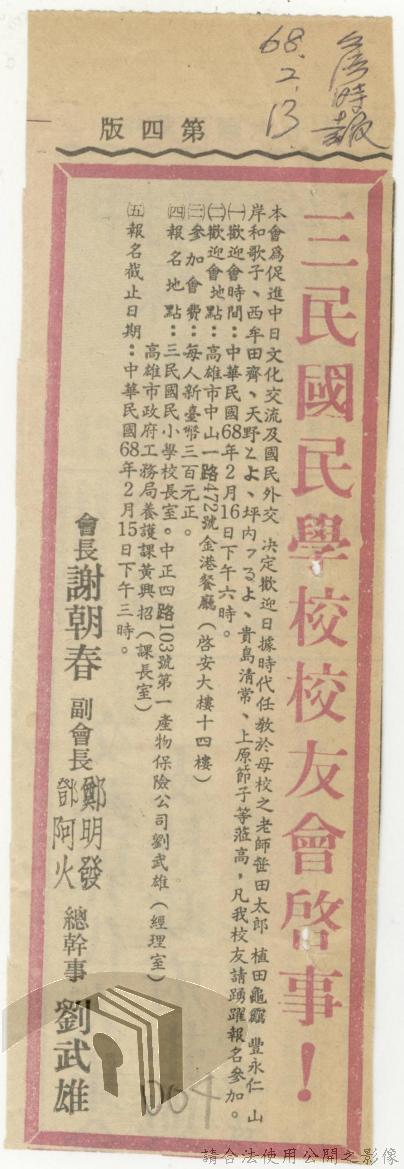 68.2.13
時報
第四版
三民國民學校校友會啓事！
本會爲促進中日文化交流及國民外交 決定歡迎日據時代任教於母校之老師笹田太郎 植田龜龝 豐永仁 山
岸和歌子、西牟田齊、天野とよ、坪内つるよ、貴島清常、上原節子等蒞高，凡我校友請踴躍報名參加。
㈠歡迎會時間：中華民國68年2月16日下午六時。
㈡歡迎會地點：高雄市中山一路472號金港餐廳（啓安大樓十四樓）
㈢參加會費：每人新臺幣三百元正。
㈣報名地點：三民國民小學校長室。中正四路103號第一產物保險公司劉武雄（經理室）
高雄市政府工務局養護課黃興招（課長室）
㈤報名截止日期：中華民國68年2月15日下午三時。
會長謝朝春 副會長 鄭明發 鄧阿火 總幹事 劉武雄
004
請合法使用公開之影像